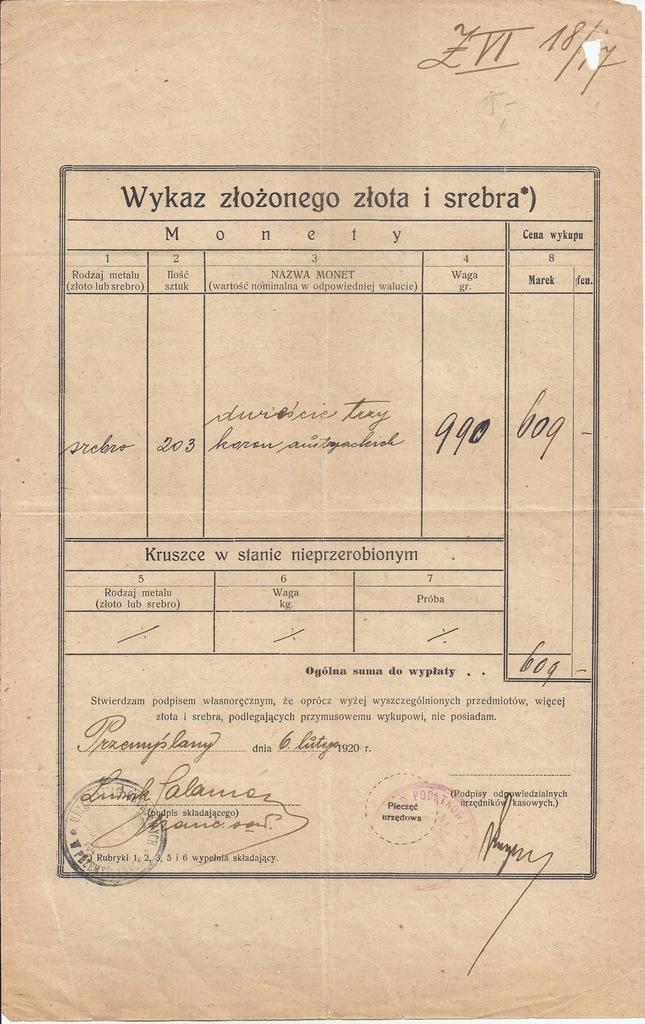 Z VI 18/17
Wykaz złożonego złota i srebra*)
Monety
Cena wykupu
1 2 3 4 8
Rodzaj metalu (złoto lub srebro)
Ilość sztuk
NAZWA MONET (wartość nominalna w odpowiedniej walucie)
Waga gr.
Marek fen.
srebro 203 dwieście trzy koron austryackich 990 609 -
Kruszce w stanie nieprzerobionym
5 6 7
Rodzaj metalu (złoto lub srebro)
Waga kg.
Próba
·/. ·/. ·/.
Ogólna suma do wypłaty . . 609 -
Stwierdzam podpisem własnoręcznym, że oprócz wyżej wyszczególnionych przedmiotów, więcej
złota i srebra, podlegających przymusowemu wykupowi, nie posiadam.
Przemyślany dnia 6. lutego 1920 r.
(podpis składającego)
Pieczęć urzędowa
(Podpisy odpowiedzialnych urzędników kasowych.)
Rubryki 1, 2, 3, 5 i 6 wypełnia składający.